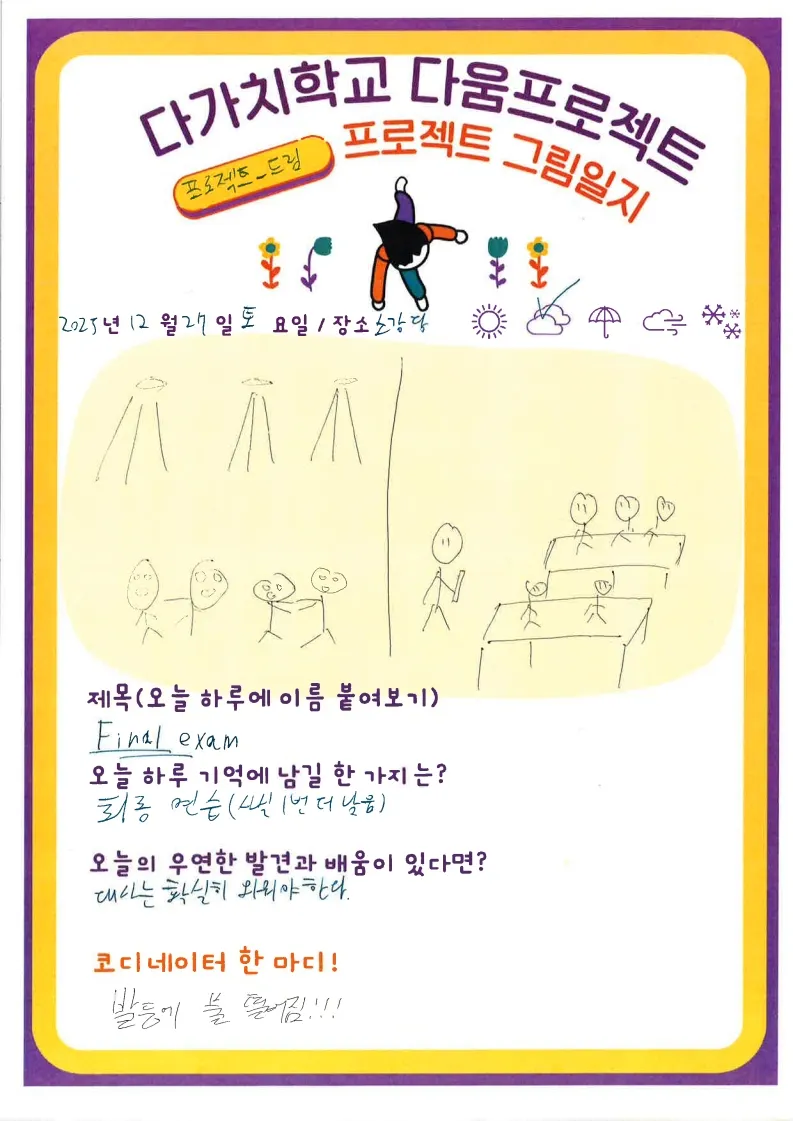 다가치학교 다움프로젝트
프로젝트 그림일지
프로젝트_드림
2025년 12월 27일 토요일 / 장소 소강당
제목(오늘 하루에 이름 붙여보기)
Final exam
오늘 하루 기억에 남길 한 가지는?
최종 연습(사실 1번 더 남음)
오늘의 우연한 발견과 배움이 있다면?
대사는 확실히 외워야한다.
코디네이터 한 마디!
발등에 불 떨어짐!!!